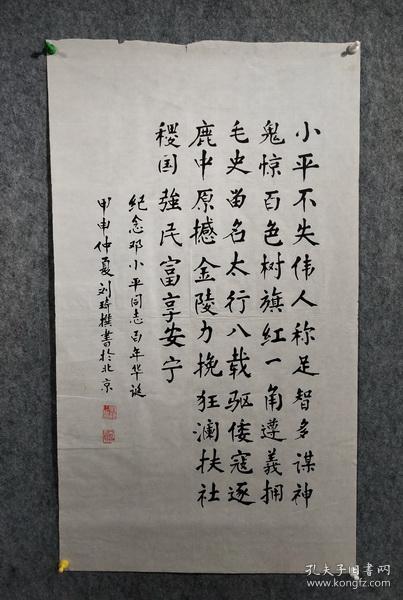 小平不失伟人称足智多谋神
鬼惊百色树旗红一角遵義拥
毛史留名太行八载驱倭寇逐
鹿中原撼金陵力挽狂澜扶社
稷国強民富享安宁
纪念邓小平同志百年华诞
甲申仲夏刘琦撰書於北京
孔夫子旧書网
www.kongfz.com